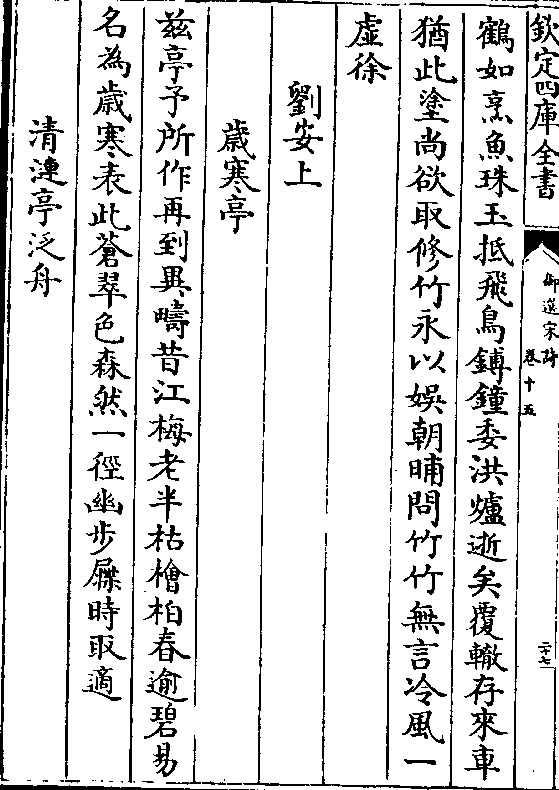 欽定四庫全書
御選宋詩
卷十五
二十七
鶴如烹魚珠玉抵飛鳥鎛鐘委洪爐逝矣覆轍存來車
猶此塗尚欲取修竹永以娛朝晡問竹竹無言冷風一
虛徐
劉安上
歲寒亭
茲亭予所作再到異疇昔江梅老半枯檜柏春逾碧易
名為歲寒表此蒼翠色森然一徑幽步屧時取適
清漣亭泛舟